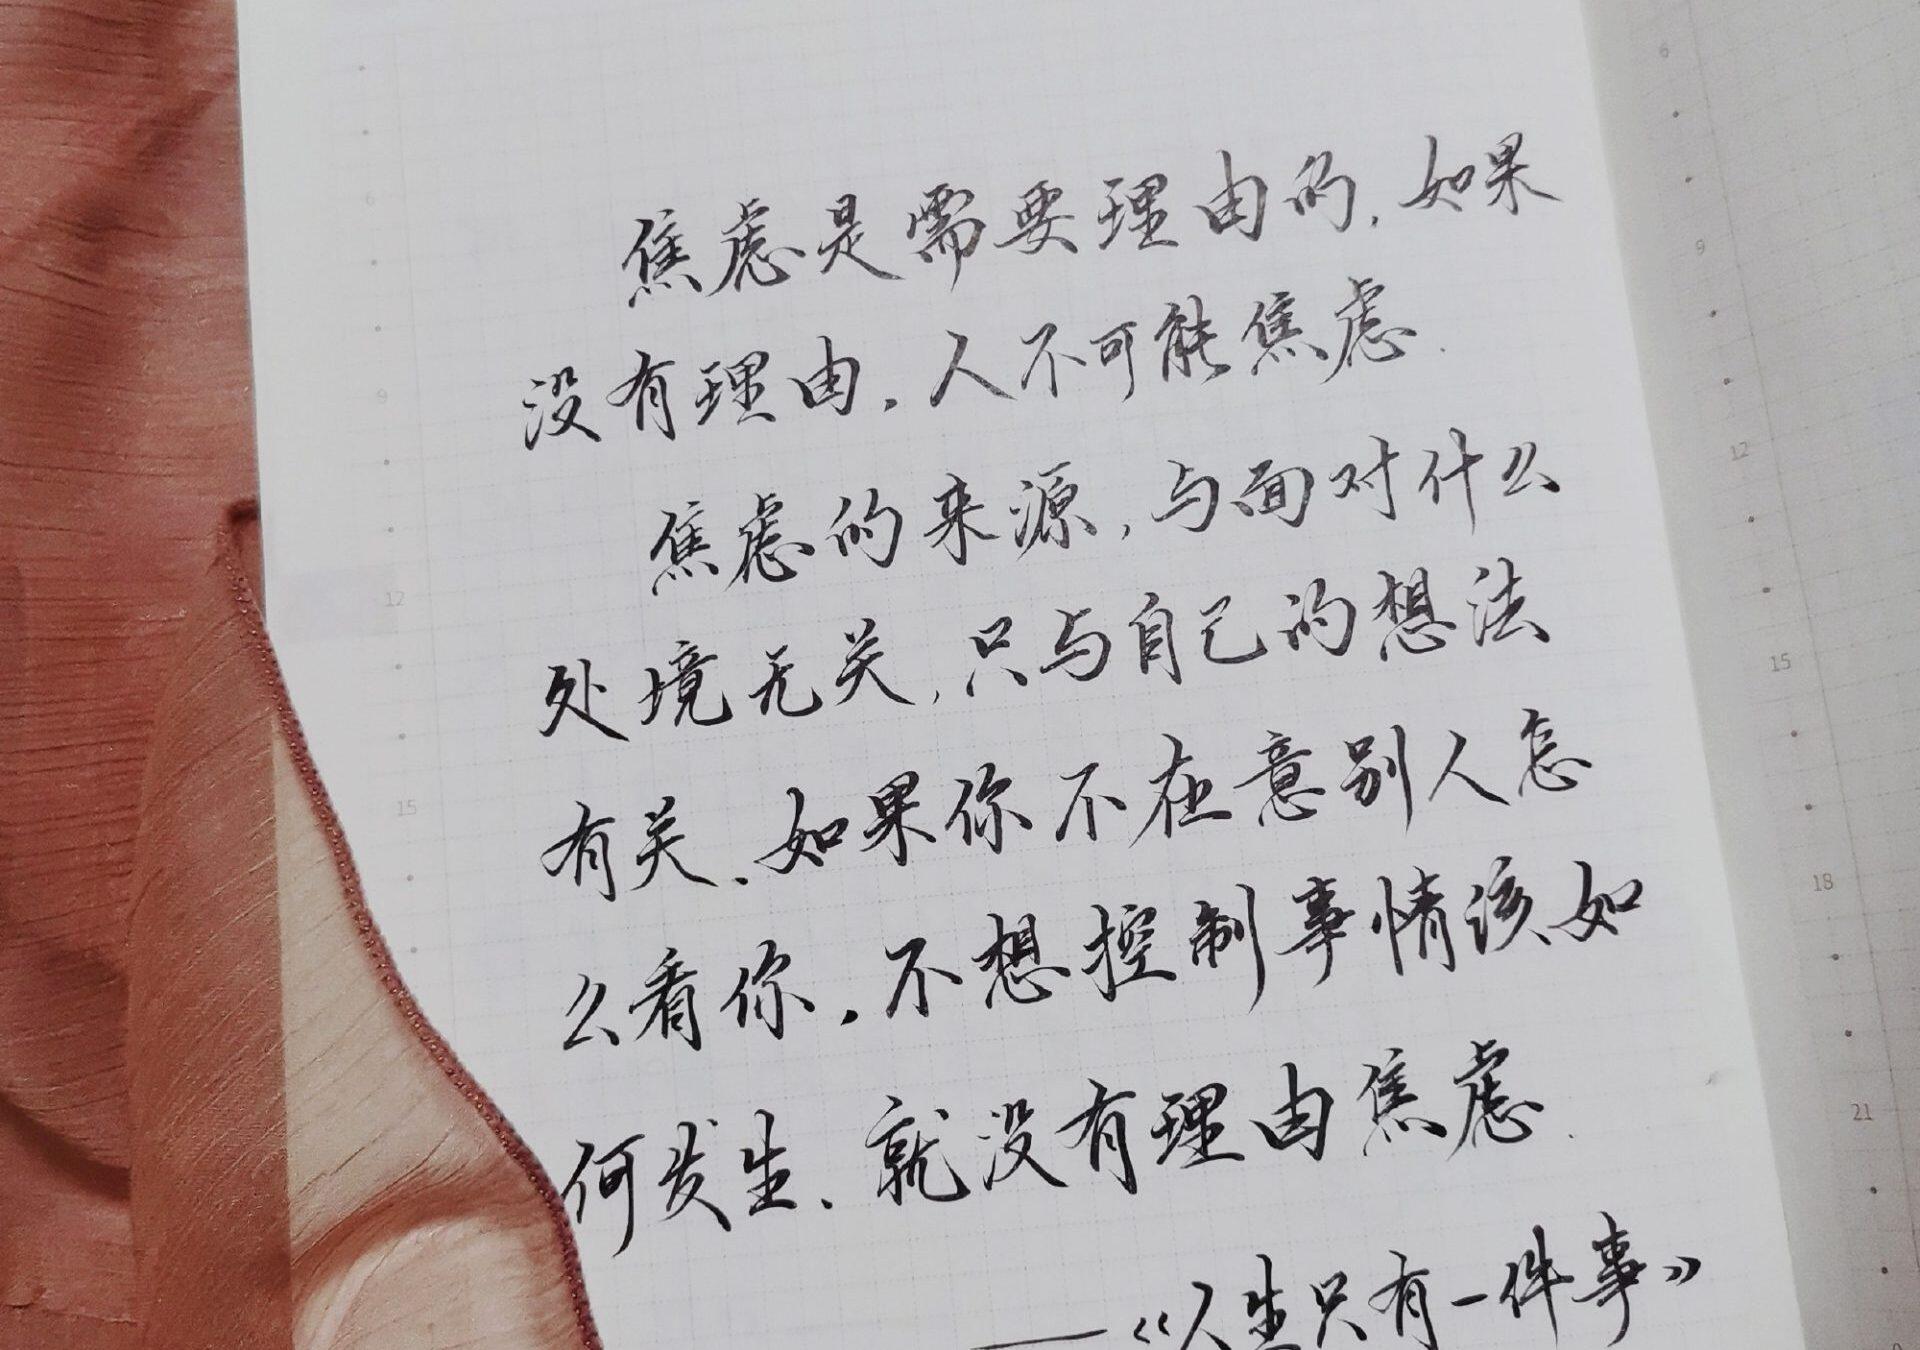 焦虑是需要理由的，如果
没有理由，人不可能焦虑.
焦虑的来源，与面对什么
处境无关，只与自己的想法
有关、如果你不在意别人怎
么看你，不想控制事情该如
何发生、就没有理由焦虑.
——《人生只有一件事》
6
9
12
15
6
9
12
15
18
21